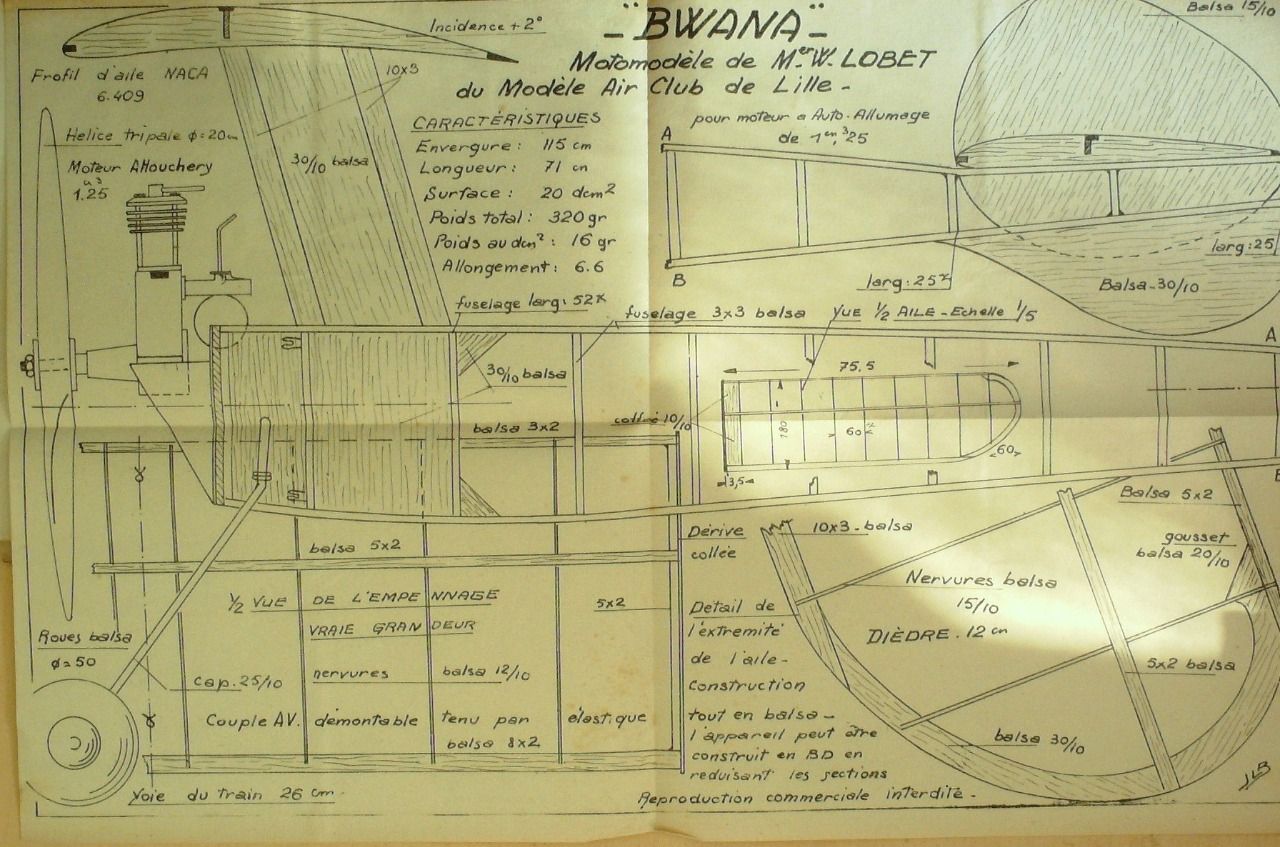 "BWANA"
Motomodèle de Mer W. LOBET
du Modèle Air Club de Lille -
pour moteur a Auto-Allumage
de 1cm,3 25
Incidence + 2°
Profil d'aile NACA
6.409
10x3
Helice tripale φ = 20cm
Moteur Allouchery
1.25
30/10 balsa
CARACTÉRISTIQUES
Envergure : 115 cm
Longueur : 71 cm
Surface : 20 dcm2
Poids total : 320 gr
Poids au dcm2 : 16 gr
Allongement : 6.6
Balsa 15/10
A
B
larg: 25
larg: 25
Balsa - 30/10
fuselage larg: 52
fuselage 3x3 balsa
VUE 1/2 AILE - Echelle 1/5
A
30/10 balsa
75,5
balsa 3x2
10/10
180
60
60
3,5
balsa 5x2
Dérive
collée
10x3 - balsa
Balsa 5x2
gousset
balsa 20/10
Nervures balsa
15/10
DIÈDRE . 12 cm
5x2 balsa
balsa 30/10
1/2 VUE DE L'EMPENNAGE
VRAIE GRANDEUR
5x2
Roues balsa
φ = 50
cap. 25/10
nervures balsa 12/10
Couple AV. démontable tenu par élastique
balsa 8x2
Detail de
l'extremité
de l'aile -
Construction
tout en balsa -
l'appareil peut être
construit en BD en
reduisant les sections
Voie du train 26 cm -
Reproduction commerciale interdite -
JLB